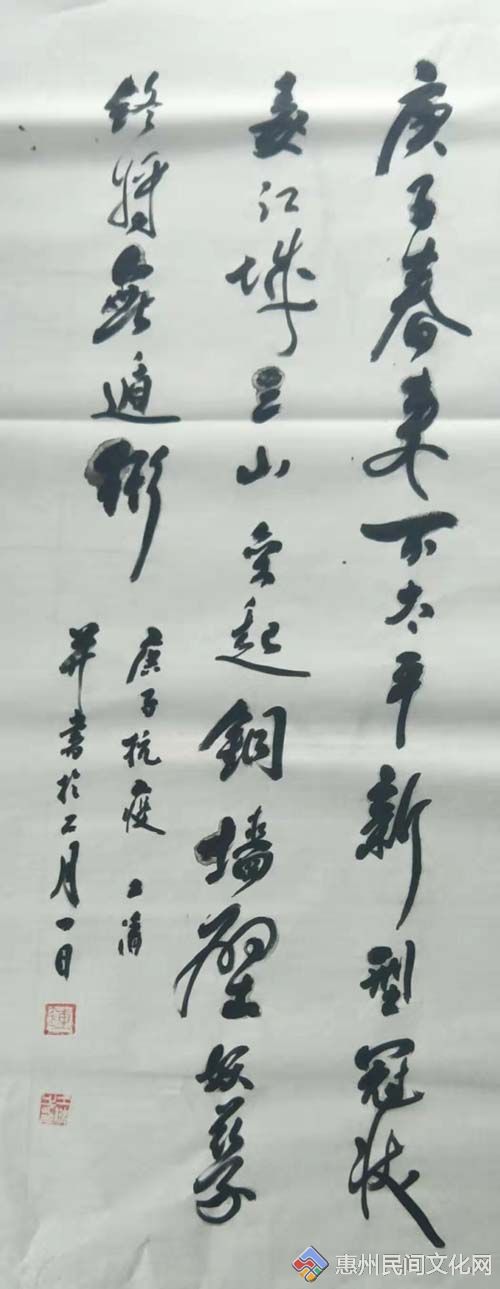 庚子春来不太平新型冠状
袭江城山起銅墙壁妖孽
终将無遁形
庚子抗疫
并書於二月一日
惠州民间文化网